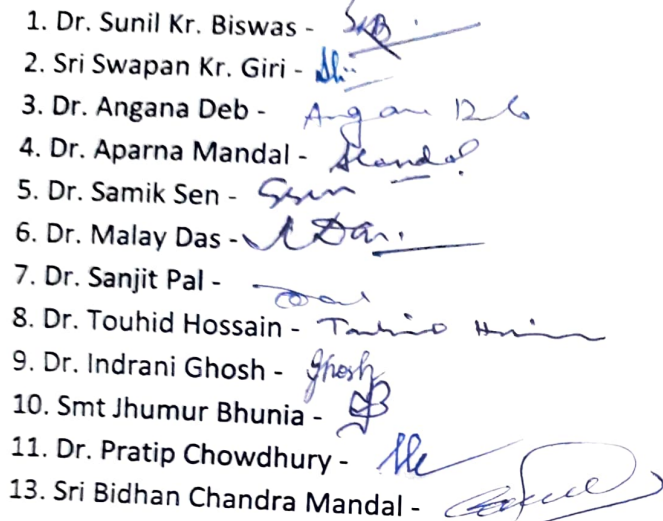 1. Dr. Sunil Kr. Biswas - SKB
2. Sri Swapan Kr. Giri -
3. Dr. Angana Deb - Angana Deb
4. Dr. Aparna Mandal - AMandal
5. Dr. Samik Sen - SSen
6. Dr. Malay Das - MDas
7. Dr. Sanjit Pal -
8. Dr. Touhid Hossain - Touhid Hossain
9. Dr. Indrani Ghosh - Ghosh
10. Smt Jhumur Bhunia -
11. Dr. Pratip Chowdhury -
13. Sri Bidhan Chandra Mandal -